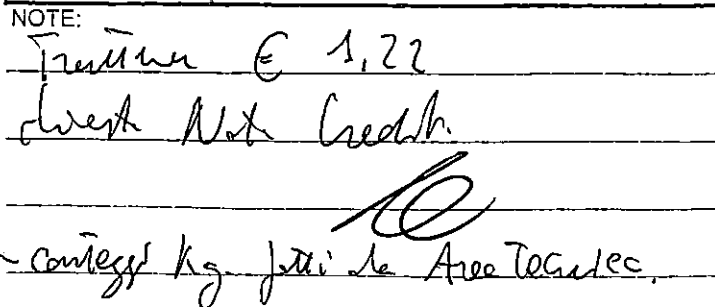 NOTE:
€ 1,22
Nota Credito
- conteggi kg. fatti da Area Tecnica.